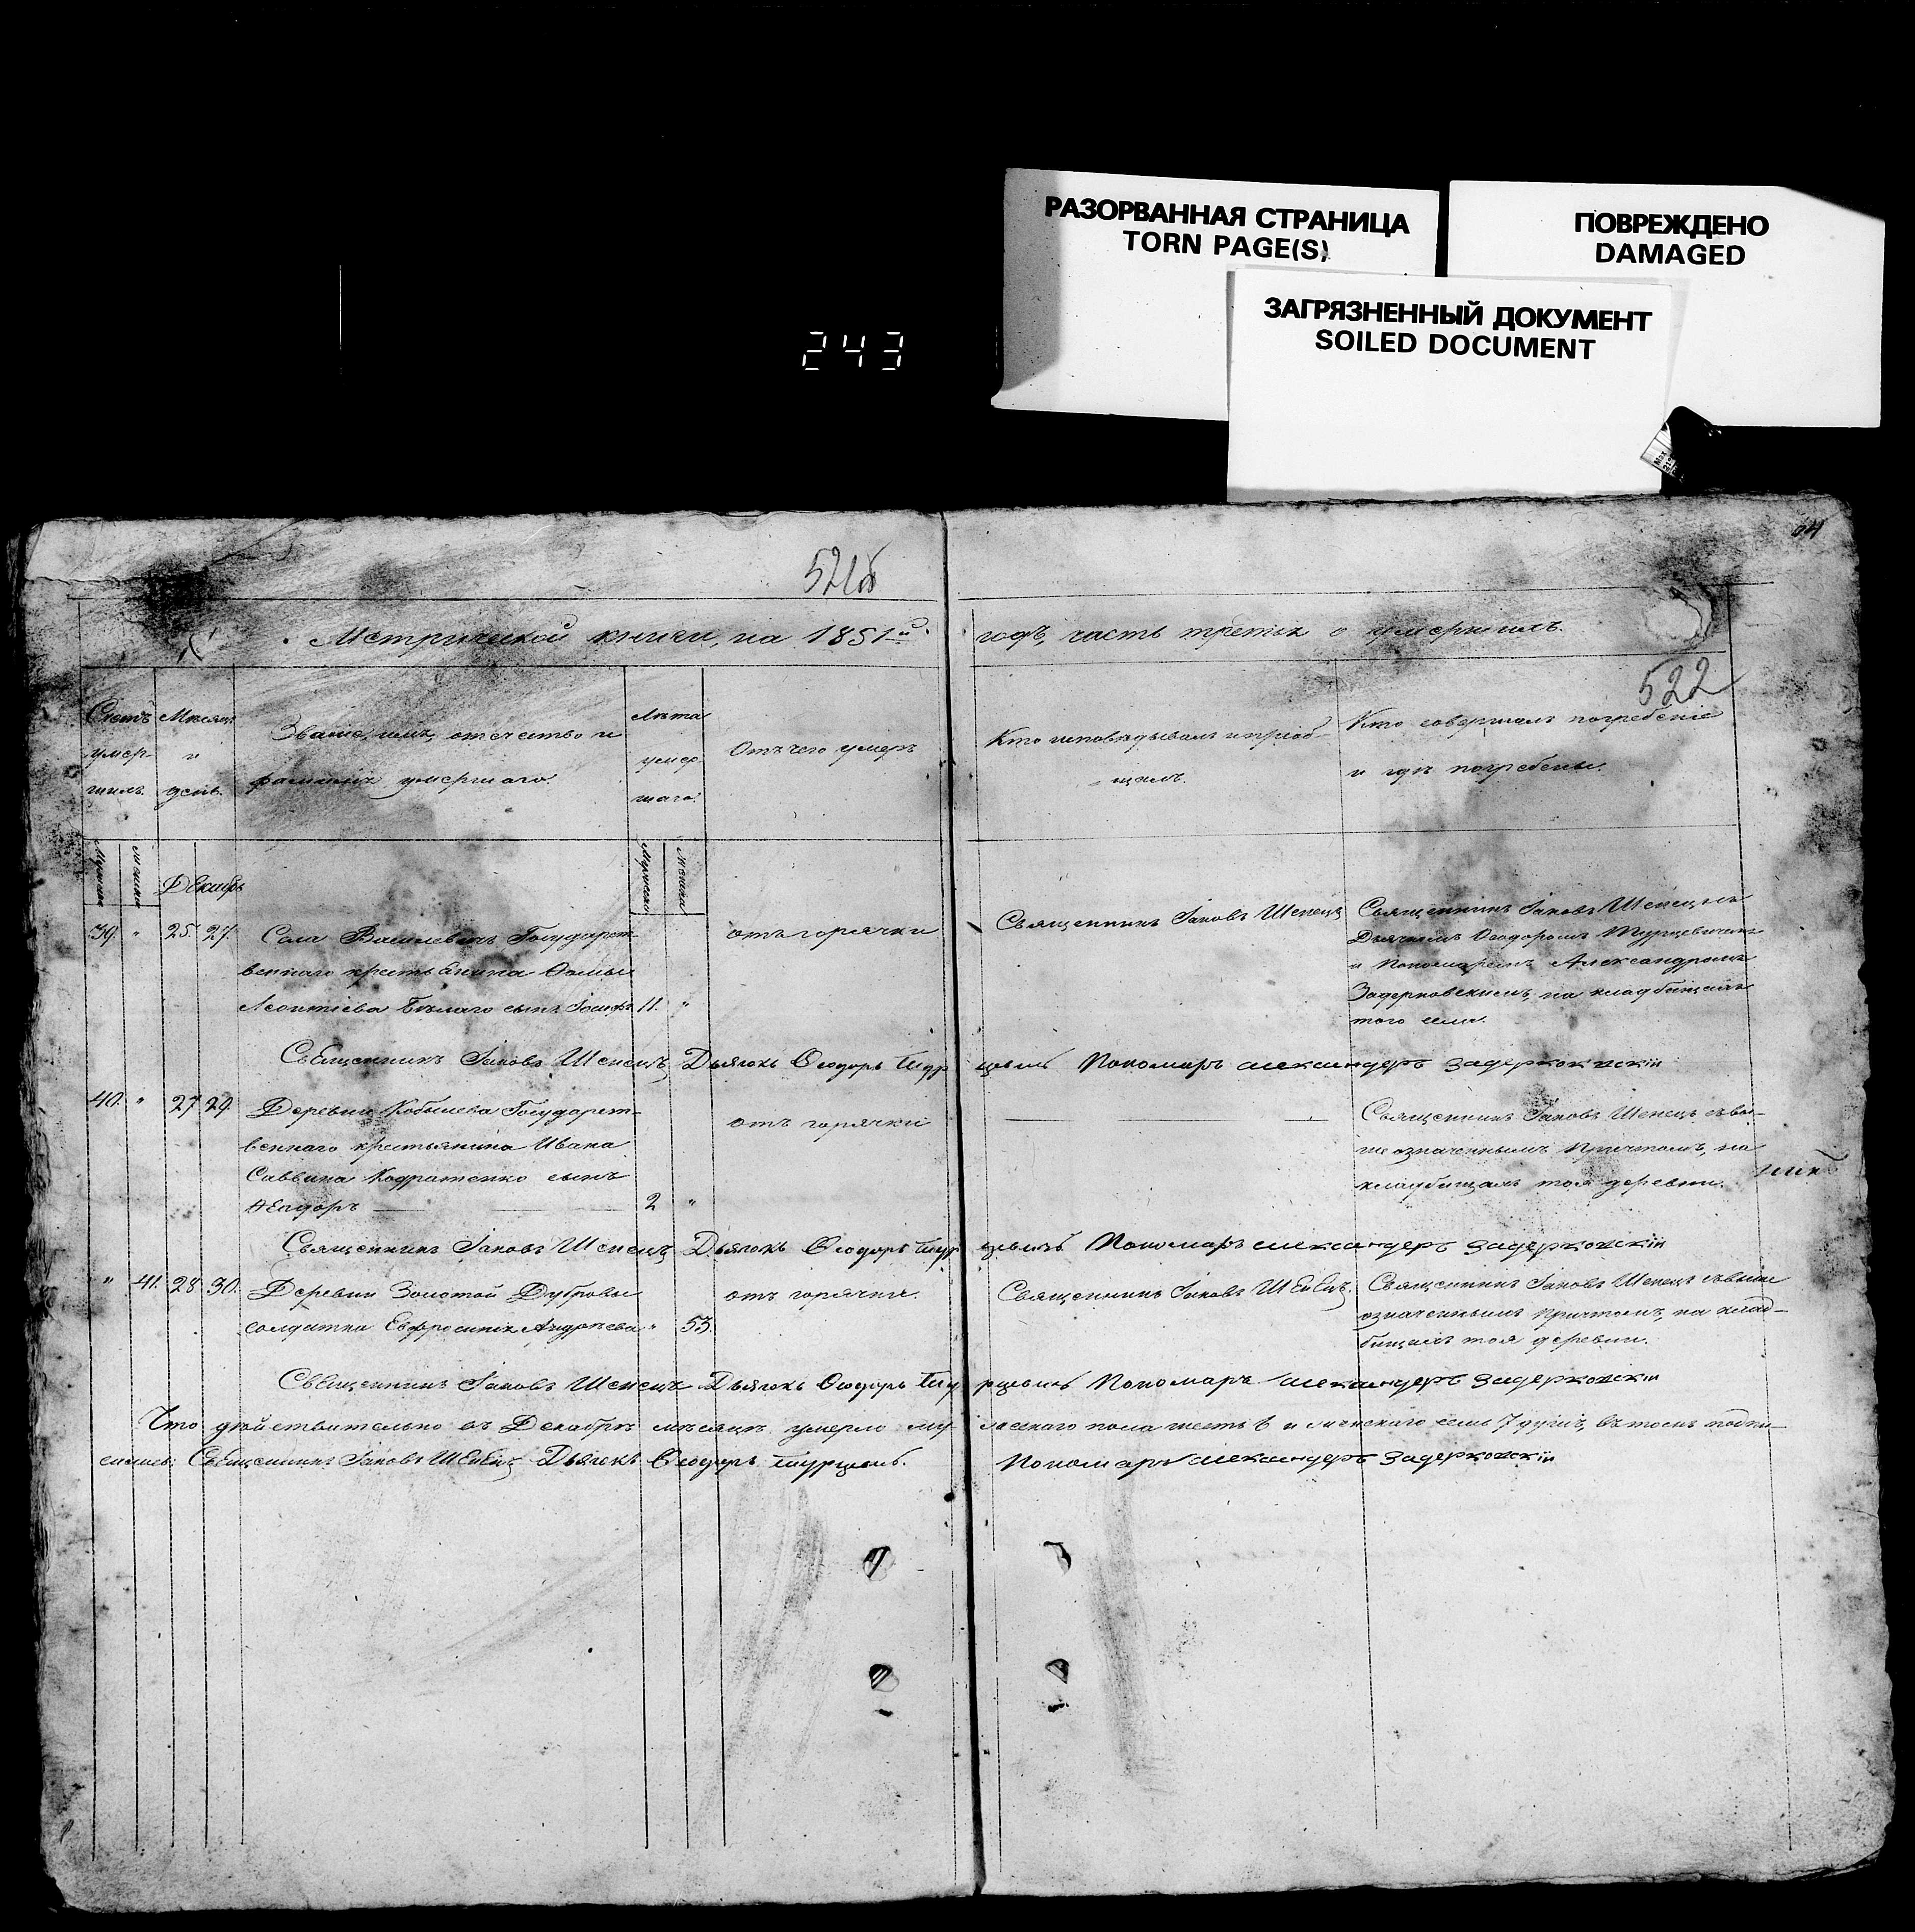 РАЗОРВАННАЯ СТРАНИЦА
TORN PAGE(S)
ПОВРЕЖДЕНО
DAMAGED
ЗАГРЯЗНЕННЫЙ ДОКУМЕНТ
SOILED DOCUMENT
243
521об
Метрической книги, на 1851й годъ, часть третья о умершихъ.
522
Счетъ умер- шихъ.
Мѣсяцъ и день.
Званіе, имя, отечество и фамилія умершаго.
Лѣта умер- шаго.
Отъ чего умеръ
Кто исповѣдывалъ и пріоб- щалъ.
Кто совершалъ погребеніе и гдѣ погребены.
Мужеска
Женска
Декабрь
Мужеска
Женска
39. " 25. 27.
Села Василевичъ Государст-
веннаго крестьянина Ѳомы
Леонтіева Бѣлаго сынъ Іосифъ 11. "
отъ горячки
Священникъ Іаковъ Шенецъ
Священникъ Іаковъ Шенецъ съ
Дьячкомъ Ѳеодоромъ Турцевичемъ
и Пономаремъ Александромъ
Задерковскимъ, на кладбищахъ
того села.
Священникъ Іаковъ Шенецъ Дьячокъ Ѳеодоръ Турцевичъ Пономаръ александеръ Задерковскій
40. " 27 29.
Деревни Кобылева Государст-
веннаго крестьянина Ивана
Саввина Кодратенко сынъ
Ѳеодоръ 2 "
отъ горячки
Священникъ Іаковъ Шенецъ съ вы-
шеозначеннымъ Причтомъ, на
кладбищахъ тоя деревни.
Священникъ Іаковъ Шенецъ Дьячокъ Ѳеодоръ Турцевичъ Пономаръ александеръ Задерковскій
" 41. 28. 30.
Деревни Золотой Дубровы
солдатка Евфросинія Андреева " 53.
отъ горячки.
Священникъ Іаковъ Шенецъ.
Священникъ Іаковъ Шенецъ съ выше
означеннымъ Причтомъ, на клад-
бищахъ тоя деревни.
Священникъ Іаковъ Шенецъ Дьячокъ Ѳеодоръ Турцевичъ Пономаръ александеръ Задерковскій
Что дѣйствительно въ Декабрѣ мѣсяцѣ умерло мужескаго пола шесть 6 и женскаго семь 7 душъ, въ томъ подпи-
Священникъ Іаковъ Шенецъ Дьячокъ Ѳеодоръ Турцевичъ. Пономаръ александеръ Задерковскій